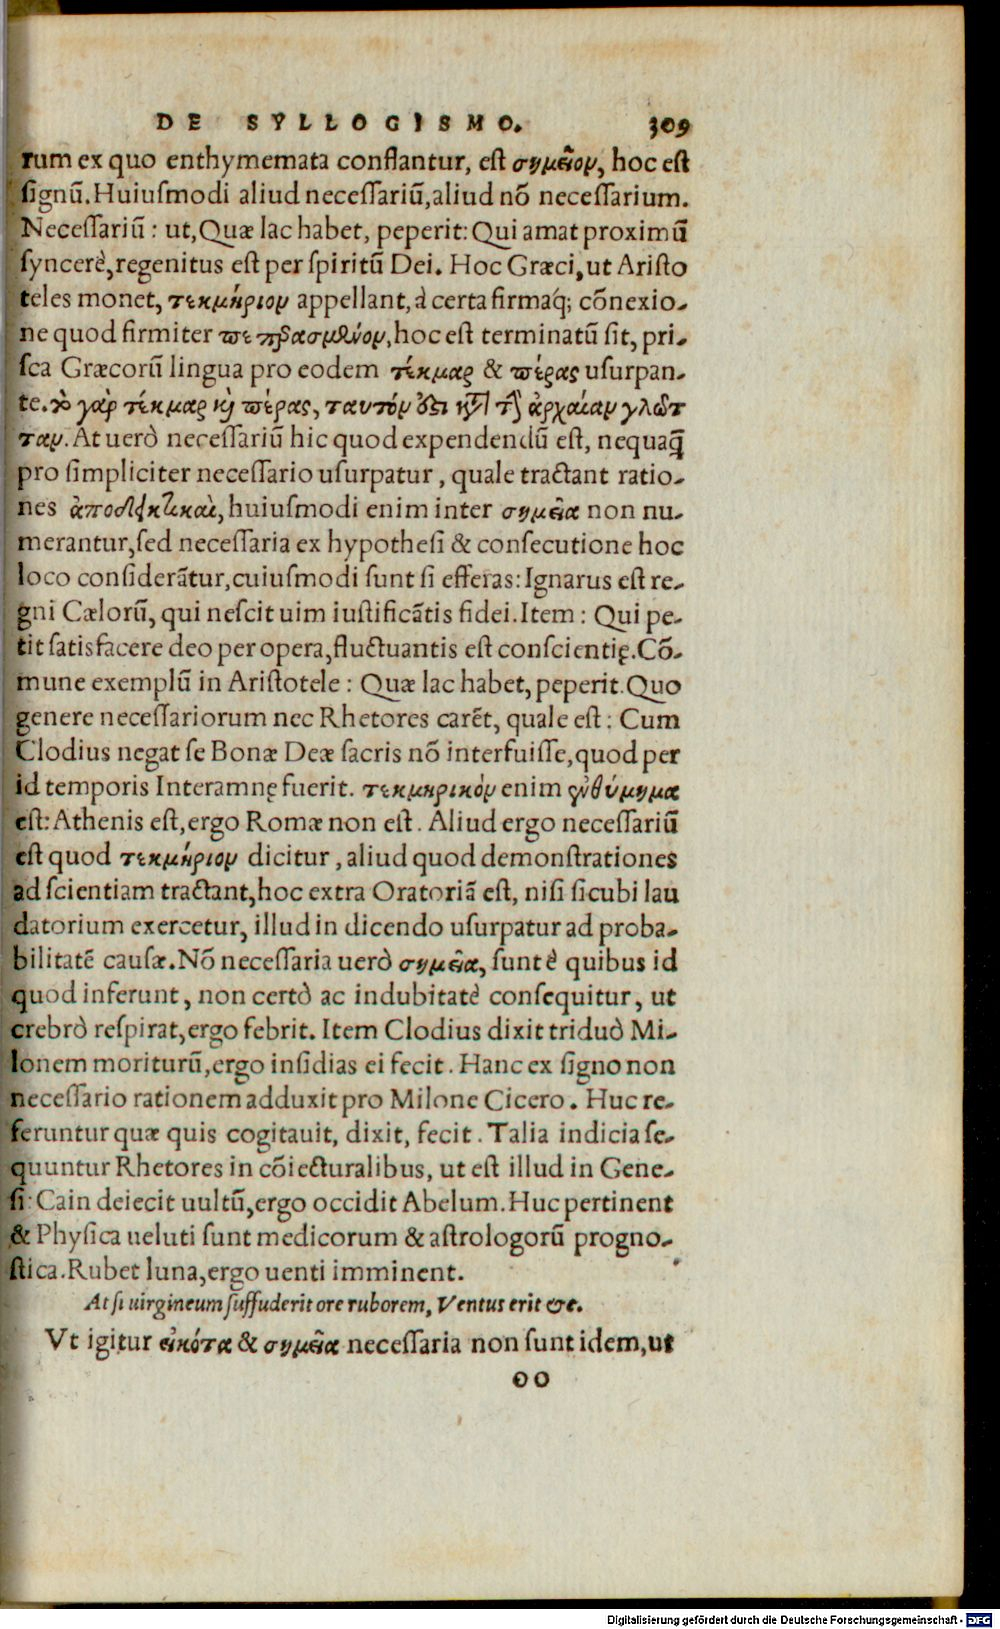 DE SYLLOGISMO. 309
rum ex quo enthymemata conflantur, est σημεῖον, hoc est
signũ. Huiusmodi aliud necessariũ, aliud nõ necessarium.
Necessariũ: ut, Quæ lac habet, peperit: Qui amat proximũ
syncerè, regenitus est per spiritũ Dei. Hoc Græci, ut Aristo
teles monet, τεκμήριον appellant, à certa firmaq́; cõnexio-
ne quod firmiter πεπερασμένον, hoc est terminatũ sit, pri-
sca Græcorũ lingua pro eodem τέκμαρ & πέρας usurpan-
te. τὸ γὰρ τέκμαρ καὶ πέρας, ταυτόν ὅτι κατὰ τὴν ἀρχαίαν γλῶτ
ταν. At uerò necessariũ hic quod expendendũ est, nequaq̃
pro simpliciter necessario usurpatur, quale tractant ratio-
nes ἀποδεικτικαὶ, huiusmodi enim inter σημεῖα non nu-
merantur, sed necessaria ex hypothesi & consecutione hoc
loco considerãtur, cuiusmodi sunt si efferas: Ignarus est re-
gni Cælorũ, qui nescit uim iustificãtis fidei. Item: Qui pe-
tit satisfacere deo per opera, fluctuantis est conscientię. Cõ-
mune exemplũ in Aristotele: Quæ lac habet, peperit. Quo
genere necessariorum nec Rhetores carẽt, quale est: Cum
Clodius negat se Bonæ Deæ sacris nõ interfuisse, quod per
id temporis Interamnę fuerit. τεκμηρικόν enim ἐνθύμημα
est: Athenis est, ergo Romæ non est. Aliud ergo necessariũ
est quod τεκμήριον dicitur, aliud quod demonstrationes
ad scientiam tractant, hoc extra Oratoriã est, nisi sicubi lau
datorium exercetur, illud in dicendo usurpatur ad proba-
bilitatẽ causæ. Nõ necessaria uerò σημεῖα, sunt è quibus id
quod inferunt, non certò ac indubitatè consequitur, ut
crebrò respirat, ergo febrit. Item Clodius dixit triduò Mi-
lonem moriturũ, ergo insidias ei fecit. Hanc ex signo non
necessario rationem adduxit pro Milone Cicero. Huc re-
feruntur quæ quis cogitauit, dixit, fecit. Talia indicia se-
quuntur Rhetores in cõiecturalibus, ut est illud in Gene-
si: Cain deiecit uultũ, ergo occidit Abelum. Huc pertinent
& Physica ueluti sunt medicorum & astrologorũ progno-
stica. Rubet luna, ergo uenti imminent.
At si uirgineum suffuderit ore ruborem, Ventus erit &c.
Vt igitur εἰκότα & σημεῖα necessaria non sunt idem, ut
OO
Digitalisierung gefördert durch die Deutsche Forschungsgemeinschaft - DFG